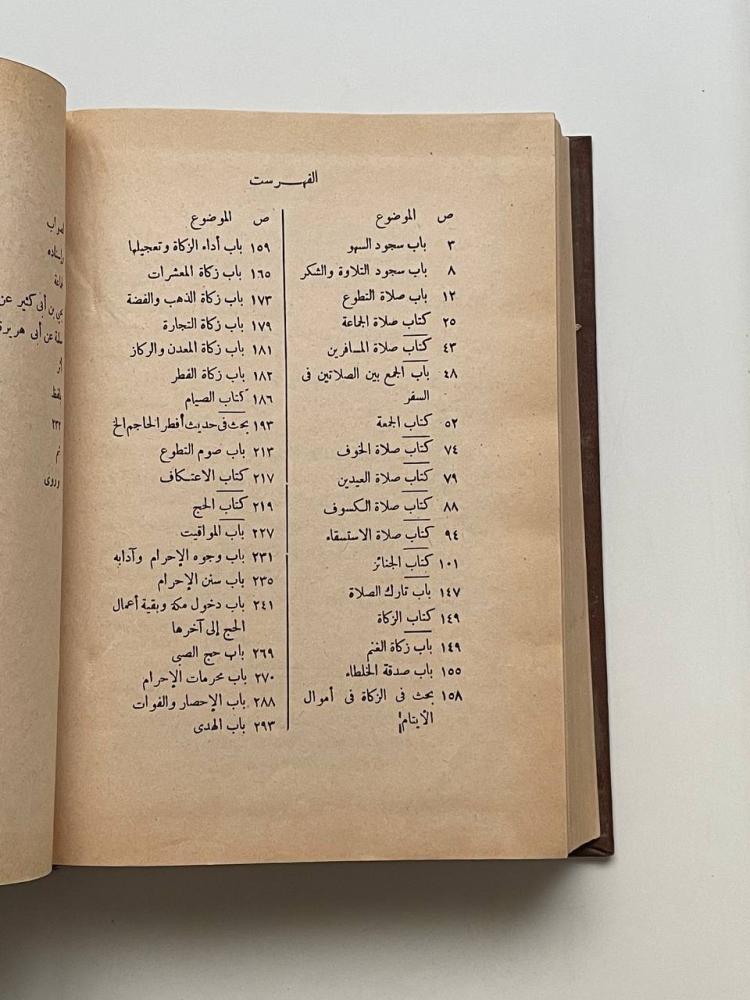 الفهرست
ص الموضوع
٣ باب سجود السهو
٨ باب سجود التلاوة والشكر
١٢ باب صلاة التطوع
٢٥ كتاب صلاة الجماعة
٤٣ كتاب صلاة المسافرين
٤٨ باب الجمع بين الصلاتين فى
السفر
٥٢ كتاب الجمعة
٧٤ كتاب صلاة الخوف
٧٩ كتاب صلاة العيدين
٨٨ كتاب صلاة الكسوف
٩٤ كتاب صلاة الاستسقاء
١٠١ كتاب الجنائز
١٤٧ باب تارك الصلاة
١٤٩ كتاب الزكاة
١٤٩ باب زكاة الغنم
١٥٥ باب صدقة الخلطاء
١٥٨ بحث فى الزكاة فى أموال
الأيتام
ص الموضوع
١٥٩ باب أداء الزكاة وتعجيلها
١٦٥ باب زكاة المعشرات
١٧٣ باب زكاة الذهب والفضة
١٧٩ باب زكاة التجارة
١٨١ باب زكاة المعدن والركاز
١٨٢ باب زكاة الفطر
١٨٦ كتاب الصيام
١٩٣ بحث فى حديث أفطر الحاجم الخ
٢١٣ باب صوم التطوع
٢١٧ كتاب الاعتكاف
٢١٩ كتاب الحج
٢٢٧ باب المواقيت
٢٣١ باب وجوه الإحرام وآدابه
٢٣٥ باب سنن الإحرام
٢٤١ باب دخول مكة وبقية أعمال
الحج إلى آخرها
٢٦٩ باب حج الصبى
٢٧٠ باب محرمات الإحرام
٢٨٨ باب الإحصار والفوات
٢٩٣ باب الهدى
يحيى بن أبى كثير عن
سلمة عن أبى هريرة
٢٣٢
وروى